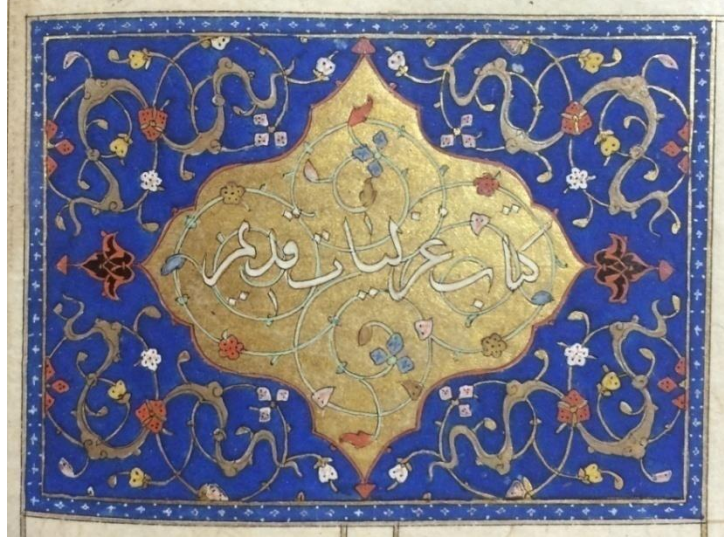 کتاب غزلیات قدیم